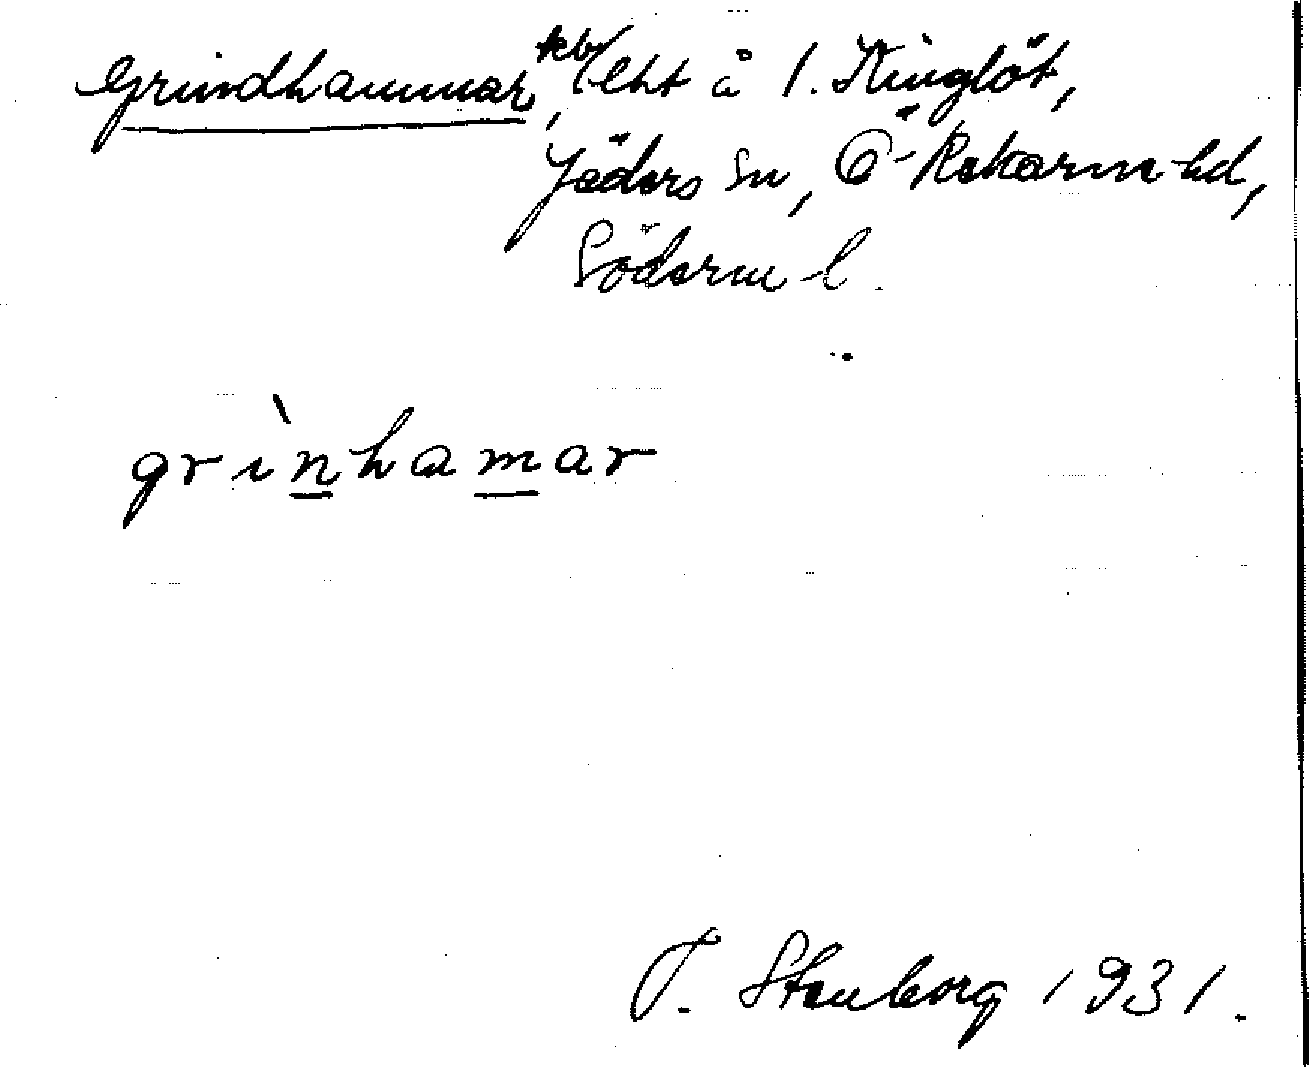 Grindhammar, tcb/lht å 1. Kinglöt,
Jäders sn, Ö-Rekarne hd,
Söderm l.
grìnhamar
T. Stenborg 1931.